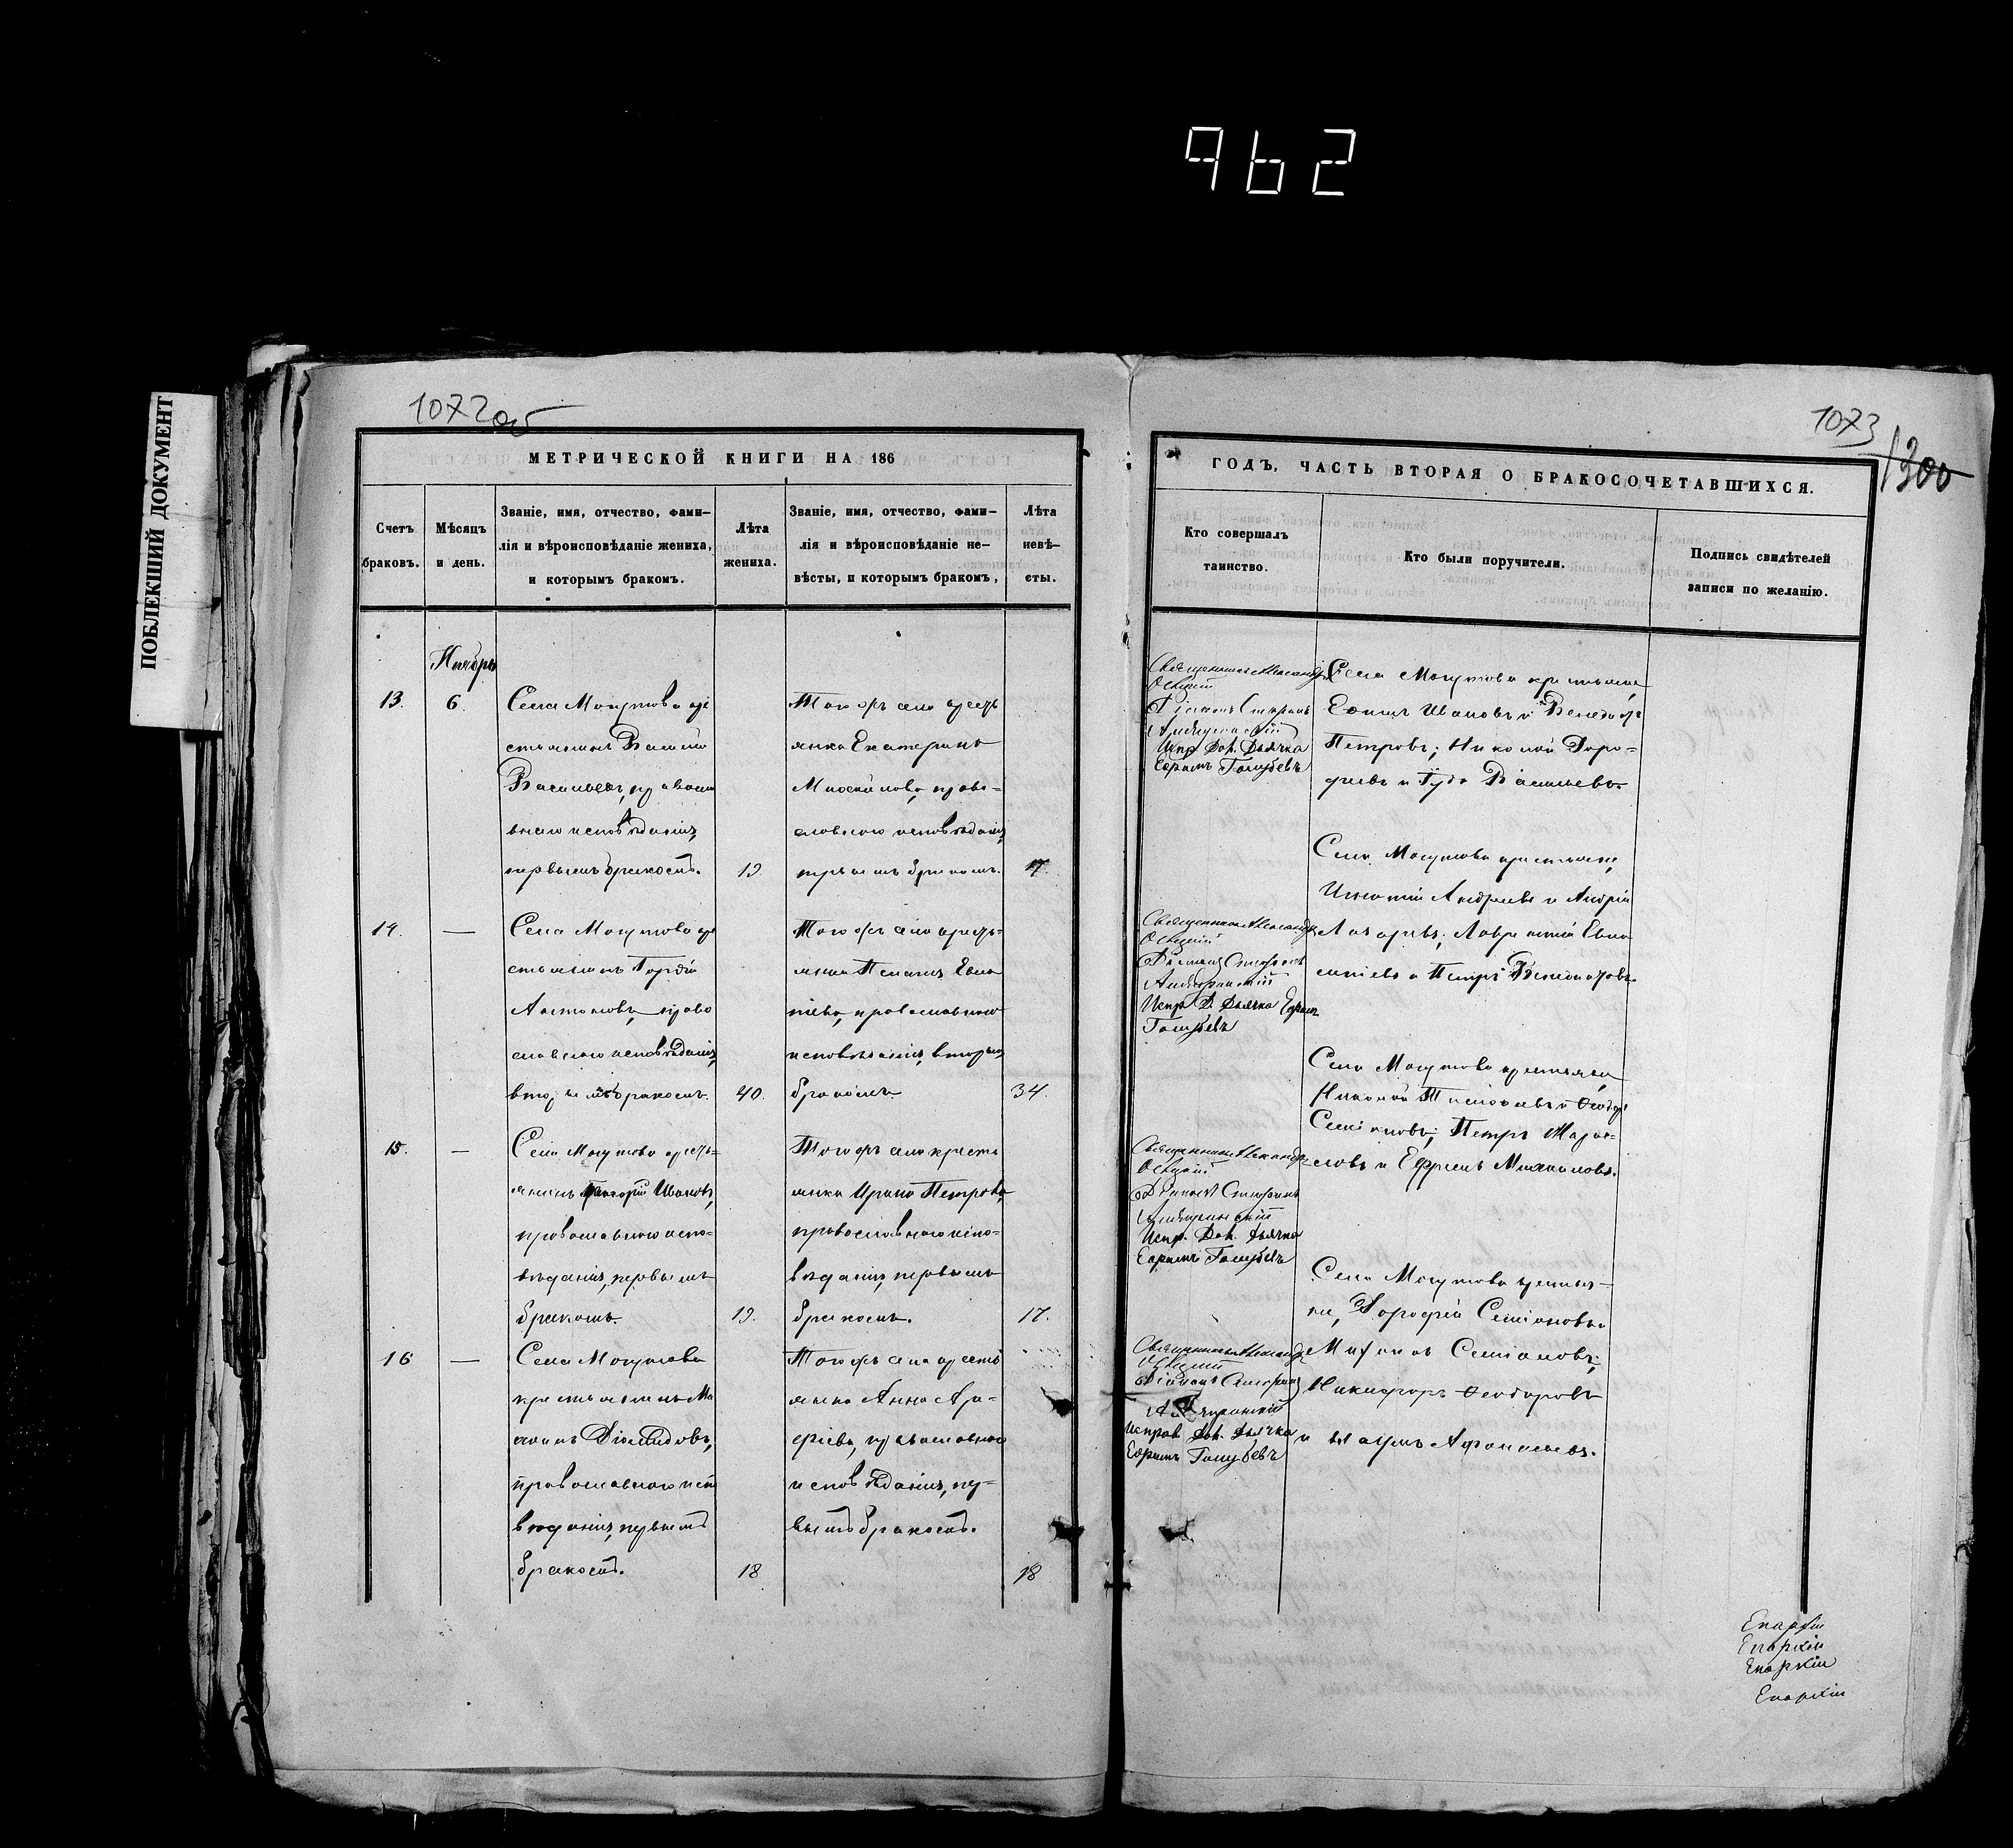 962
ПОБЛЕКШИЙ ДОКУМЕНТ
1072об
МЕТРИЧЕСКОЙ КНИГИ НА 186
Счетъ браковъ.
Мѣсяцъ и день.
Званіе, имя, отчество, фами-
лія и вѣроисповѣданіе жениха,
и которымъ бракомъ.
Лѣта жениха.
Званіе, имя, отчество, фами-
лія и вѣроисповѣданіе не-
вѣсты, и которымъ бракомъ,
Лѣта невѣ-
сты.
Ноябрь
13.
6.
Села Могутова кре
стьянинъ
Васильевъ, правосла
внаго исповѣданія,
первымъ бракомъ.
19.
Тогожъ села кресть
янка Екатерина
право-
славнаго исповѣданія,
первымъ бракомъ.
17
14.
—
Села Могутова кре
стьянинъ Гордій
Антоновъ, право
славнаго исповѣданія,
вторымъ бракомъ.
40.
Тогожъ села кресть-
янка Пелагія Евла
піева, православнаго
исповѣданія, вторымъ
бракомъ.
34.
15.
—
Села Могутова кресть-
янинъ Григорій Ивановъ,
православнаго испо-
вѣданія, первымъ
бракомъ.
19.
Тогожъ села кресть
янка Ирина Петрова,
православнаго испо-
вѣданія, первымъ
бракомъ.
17.
16
—
Села Могутова
крестьянинъ Ма
Діомидовъ,
православнаго испо
вѣданія, первымъ
бракомъ.
18
Тогожъ села кресть
янка Анна
православнаго
исповѣданія, пер-
вымъ бракомъ.
18
1073
1300
ГОДЪ, ЧАСТЬ ВТОРАЯ О БРАКОСОЧЕТАВШИХСЯ.
Кто совершалъ
таинство.
Кто были поручители.
Подпись свидѣтелей
записи по желанію.
Священникъ Александръ
Діаконъ Стефанъ
Испр. Дол. Дьячка
Ефремъ Голубевъ
Села Могутова крестьяне,
Ефимъ Ивановъ и Венедиктъ
Петровъ; Николай Доро-
феевъ и Іуда Васильевъ.
Священникъ Александръ
Діаконъ Стефанъ
Испр. Д. Дьячка Ефремъ
Голубевъ
Села Могутова крестьяне,
Игнатій Андреевъ и Андрей
Лазаревъ; Лаврентій Евла
мпіевъ и Петръ Венедиктовъ.
Священникъ Александръ
Діаконъ Стефанъ
Испр. Дол. Дьячка
Ефремъ Голубевъ
Села Могутова крестьяне,
Николай Тимофеевъ и Феодоръ
Семіоновъ; Петръ
и Ефремъ Михайловъ.
Священникъ Александръ
Діаконъ Стефанъ
Исправ. Дол. Дьячка
Ефремъ Голубевъ
Села Могутова крестья-
не, Дорофей Семіоновъ и
Семіоновъ;
Никифоръ Феодоровъ
и Наумъ Афанасьевъ.
Епархіи
Епархіи
Епархіи
Епархіи